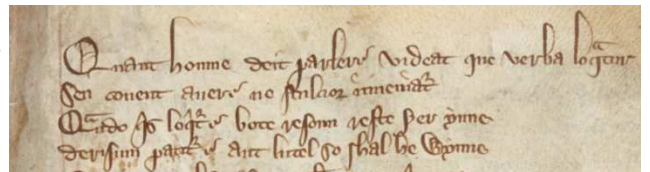 Quant homme deit parlere videat que verba loqͣtur
Sen couent auere ne stulcior inueniatͬ
Qͣndo qͥs loqͥtͬ bote resoun reste þer ynne
derisum patitͬ ant lutel so shal he wynne